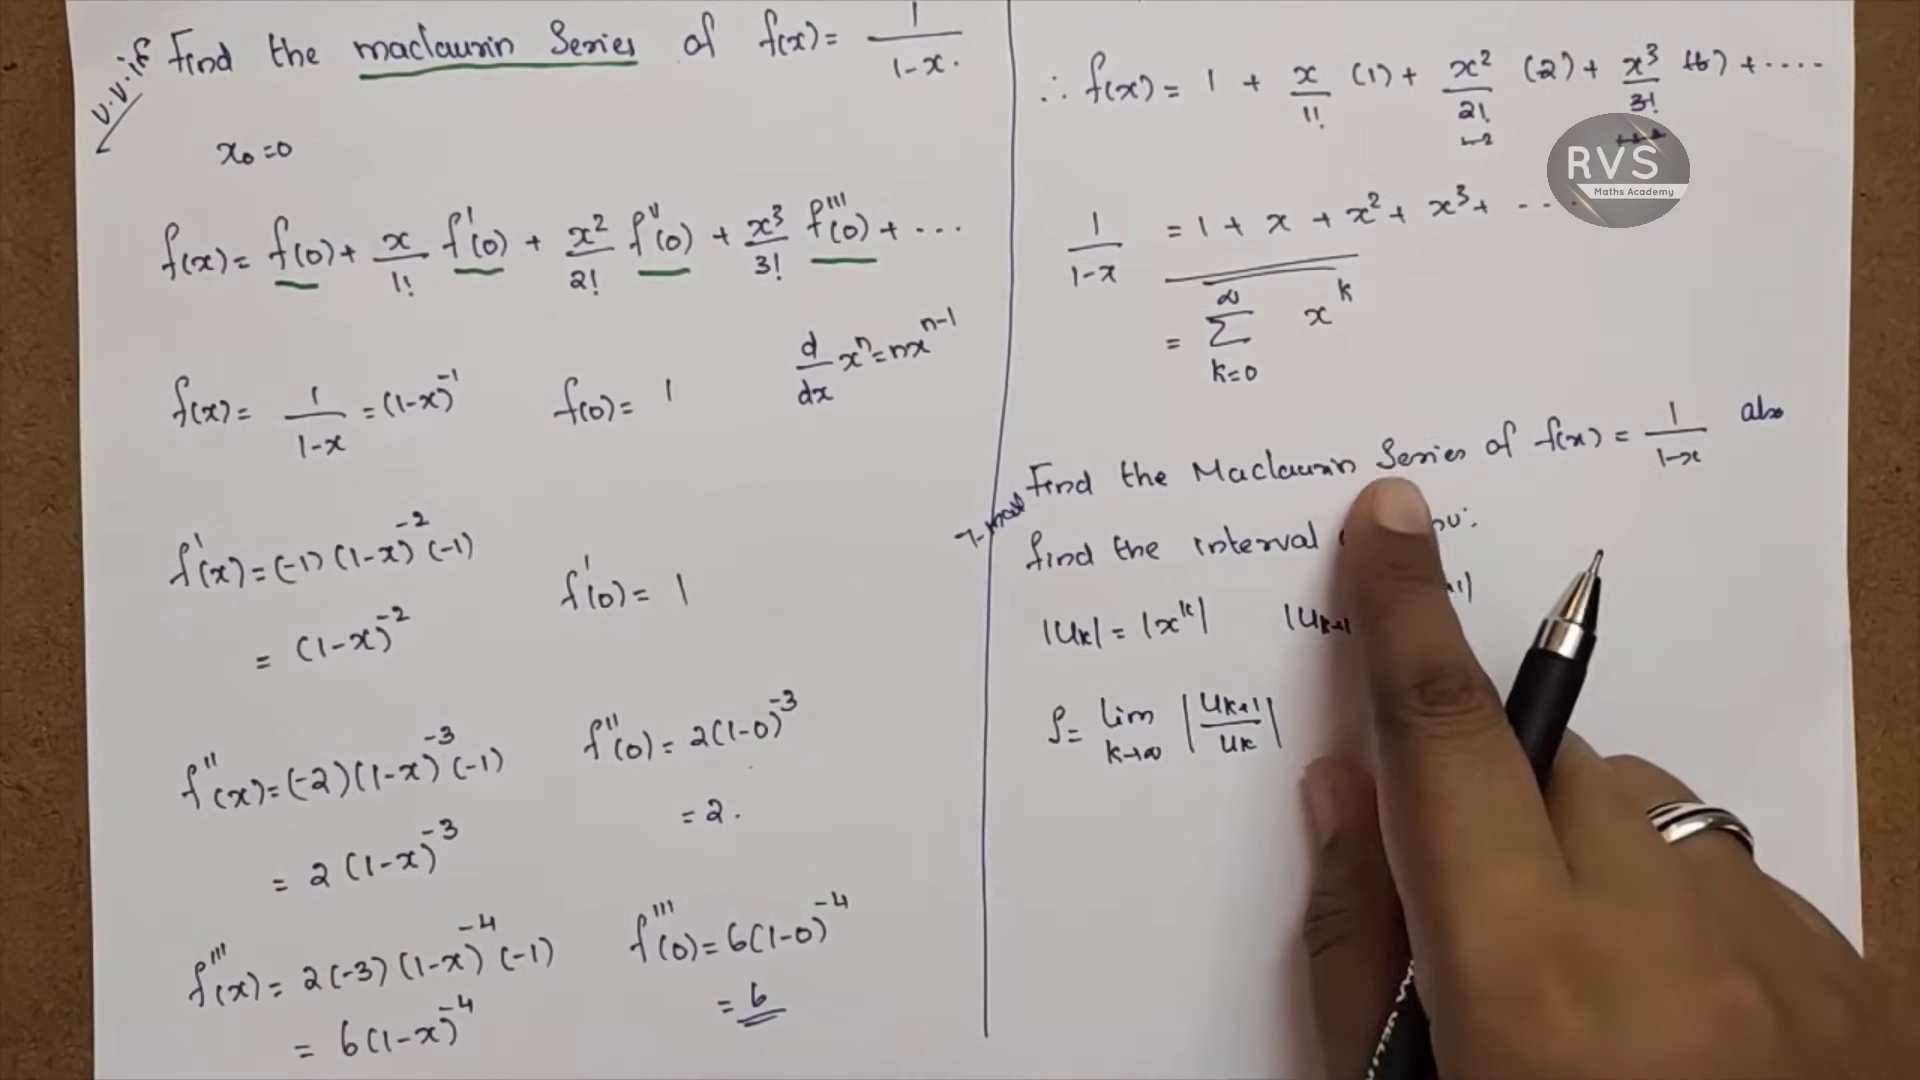 v.v.if
Find the maclaurin Series of f(x) = 1/1-x.
x₀=0
f(x) = f(0) + x/1! f'(0) + x²/2! f''(0) + x³/3! f'''(0) + ...
d/dx xⁿ = nxⁿ⁻¹
f(x) = 1/1-x = (1-x)⁻¹ f(0) = 1
f'(x) = (-1)(1-x)⁻²(-1)
= (1-x)⁻² f'(0) = 1
f''(x) = (-2)(1-x)⁻³(-1) f''(0) = 2(1-0)⁻³
= 2(1-x)⁻³ = 2.
f'''(x) = 2(-3)(1-x)⁻⁴(-1) f'''(0) = 6(1-0)⁻⁴
= 6(1-x)⁻⁴ = 6
∴ f(x) = 1 + x/1! (1) + x²/2! (2) + x³/3! (6) + ....
RVS
Maths Academy
1/1-x = 1 + x + x² + x³ + ...
= ∞ Σ k=0 xᵏ
Find the Maclaurin Series of f(x) = 1/1-x also
find the interval
|uₖ| = |xᵏ| |uₖ₊₁|
ρ = lim k→∞ |uₖ₊₁/uₖ|